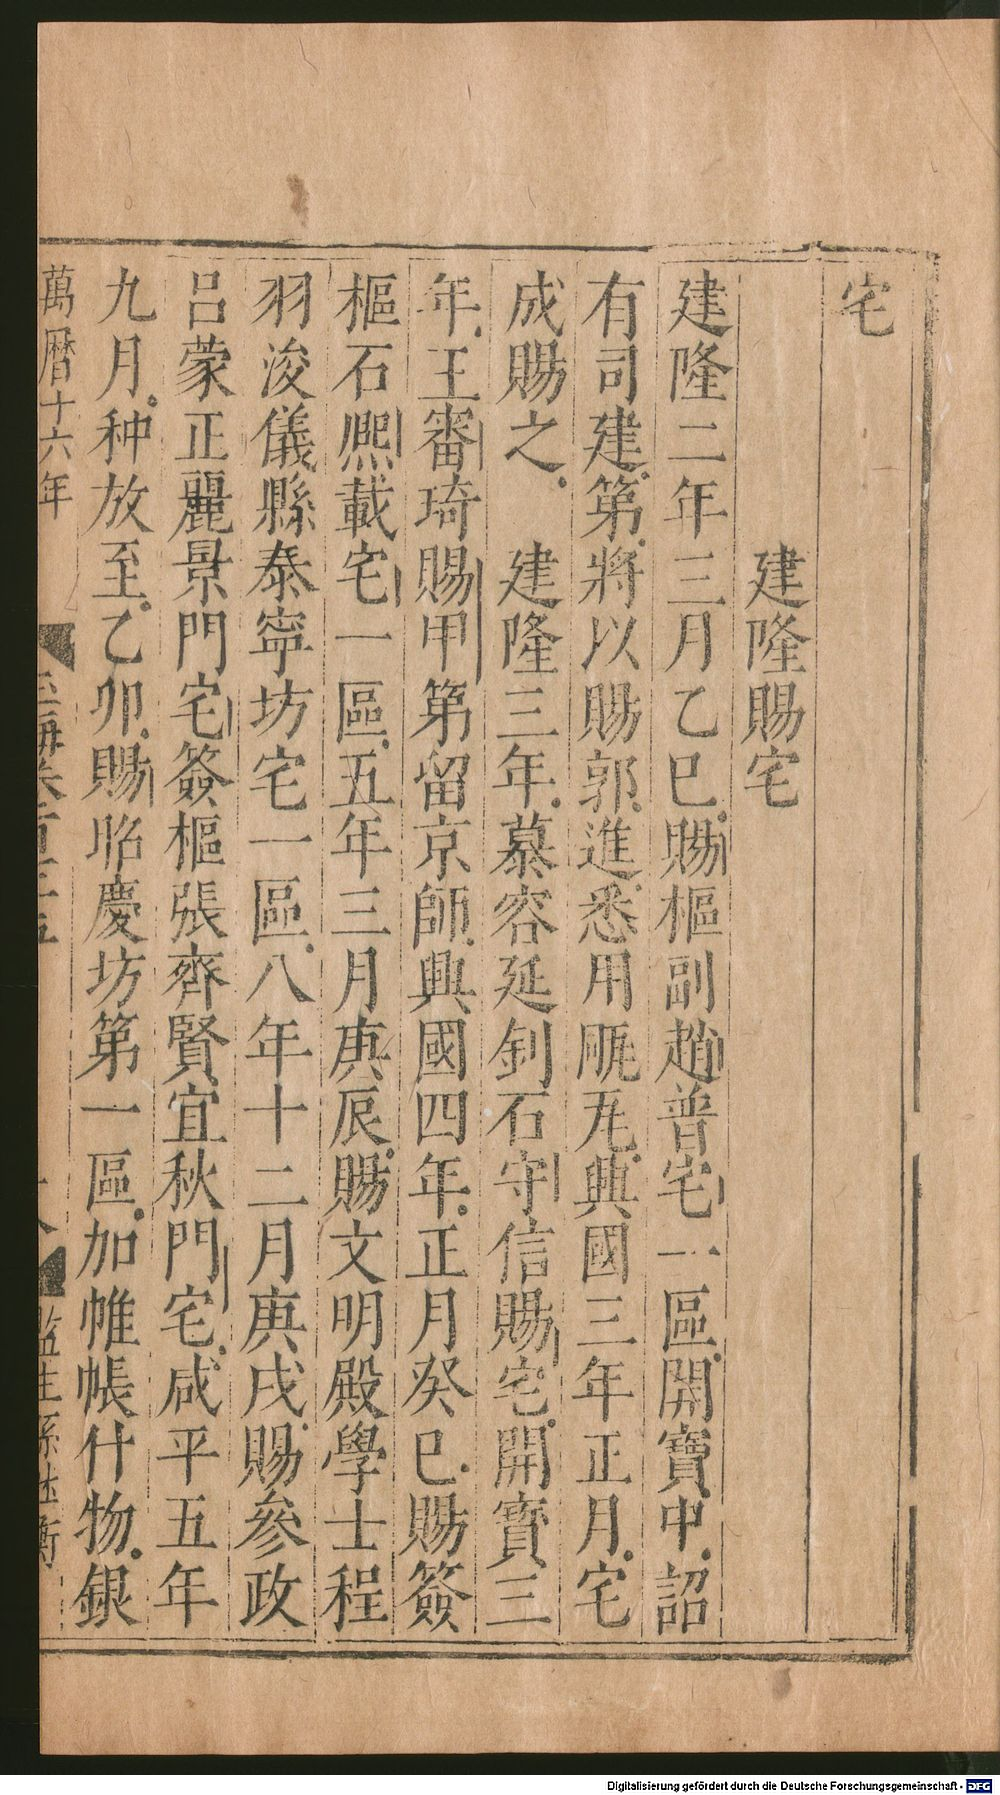 宅
建隆賜宅
建隆二年三月乙巳賜樞副趙普宅一區開寶中詔
有司建第將以賜郭進悉用㼧瓦興國三年正月宅
成賜之 建隆三年慕容延釗石守信賜宅開寶三
年王審琦賜甲第留京師興國四年正月癸巳賜簽
樞石熈載宅一區五年三月庚辰賜文明殿學士程
羽浚儀縣泰寧坊宅一區八年十二月庚戌賜參政
呂蒙正麗景門宅簽樞張齊賢宜秋門宅咸平五年
九月种放至乙卯賜昭慶坊第一區加帷帳什物銀
萬曆十六年 玉海卷百 監生孫 衡
Digitalisierung gefördert durch die Deutsche Forschungsgemeinschaft - DFG